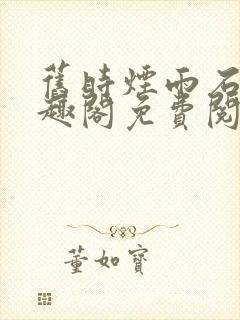 舊時煙雨石
趣閣免費閱
董如寶